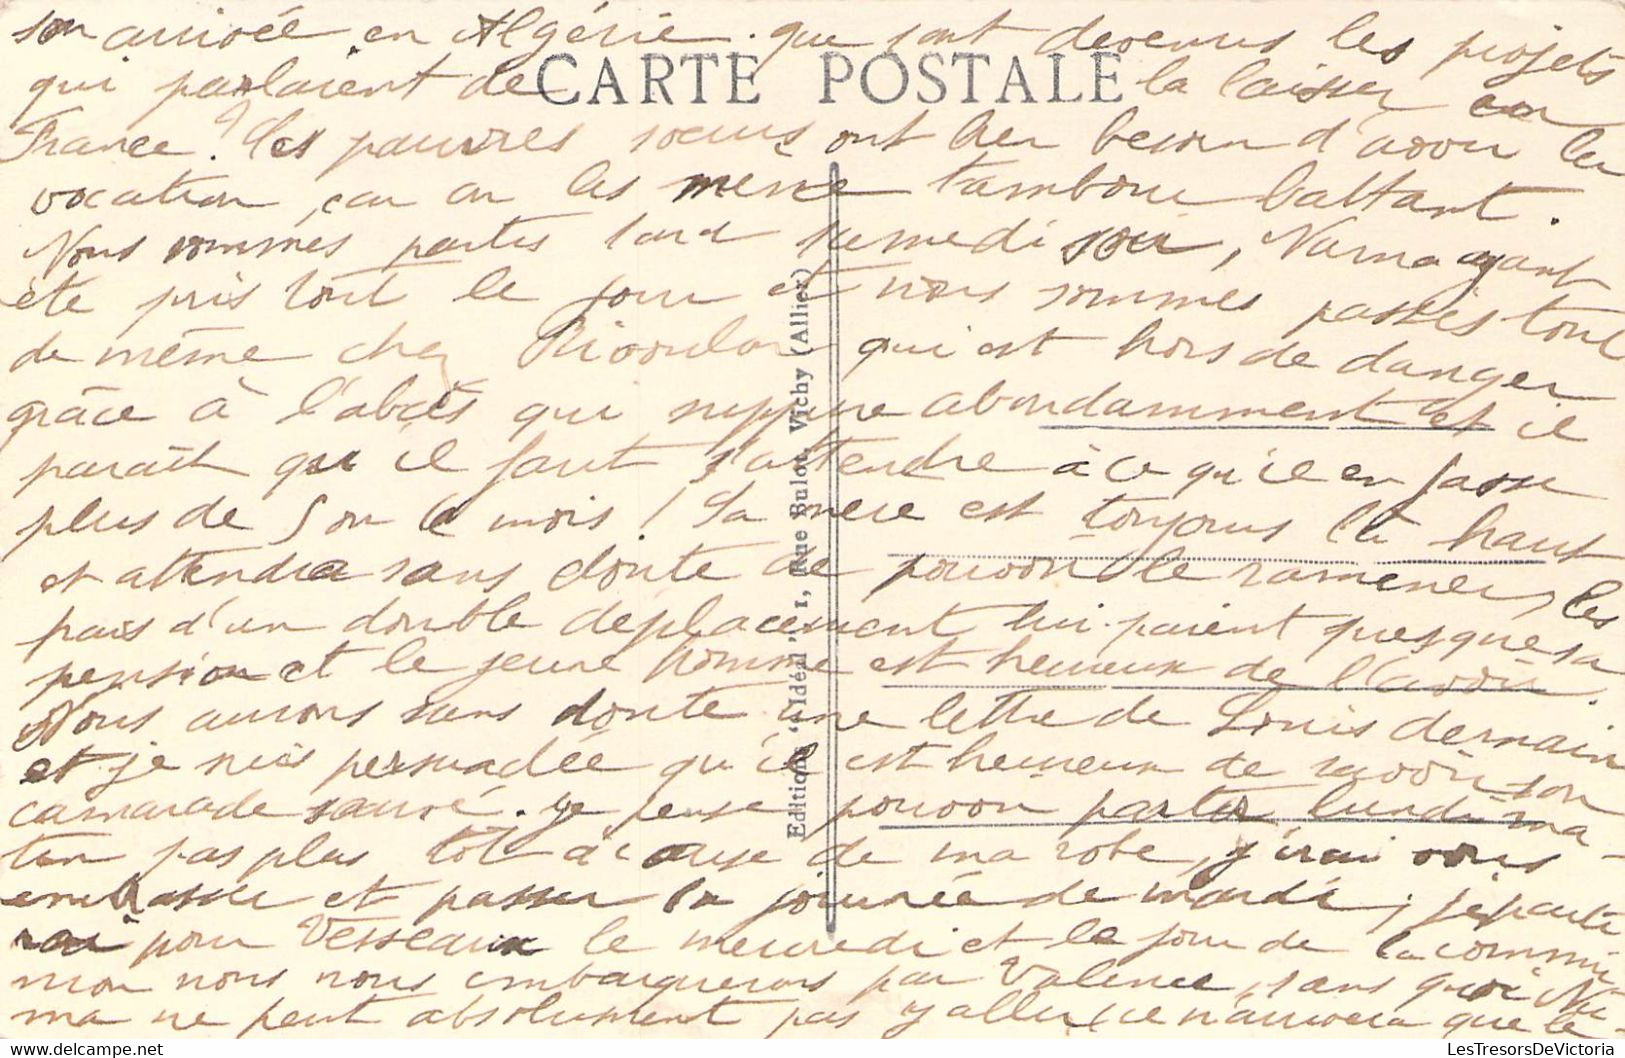 son arrivée en Algérie. que sont devenus les projets
CARTE POSTALE
qui parlaient de la laisser en
France ? Les pauvres soeurs ont bien besoin d'avoir la
vocation, car on les mène tambour battant.
Nous sommes partis tard samedi soir, Numa ayant
été pris tout le jour et nous sommes passés tout
de même chez qui est hors de danger
grâce à l'abcès qui suppure abondamment et il
paraît qu'il faut s'attendre à ce qu'il en fasse
plus de 5 ou 6 mois ! Sa mère est toujours là haut
et attendra sans doute de pouvoir le ramener, les
frais d'un double déplacement lui paient presque sa
pension et le jeune homme est heureux de l'avoir.
Nous aurons sans doute une lettre de Louis demain
et je suis persuadée qu'il est heureux de savoir son
camarade sauvé. Je pense pouvoir partir lundi ma-
tin pas plus tôt à cause de ma robe, j'irai vous
embrasser et passer la journée de mardi ; je parti
rai pour Vesseaux le mercredi et le jour de la commu
nion nous nous embarquerons par Valence, sans quoi Nu-
ma ne peut absolument pas y aller, ce n'aurera que le
Editions "Idéal", 1, Rue Bulot, Vichy (Allier)
LesTresorsDeVictoria